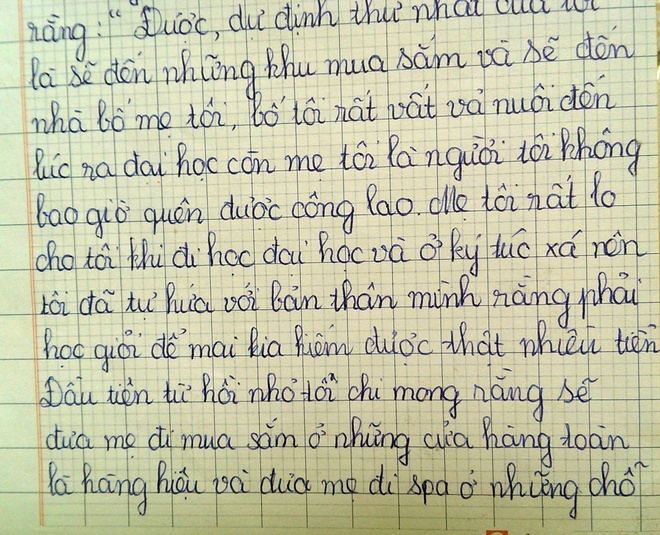 rằng: "Được, dự định thứ nhất của tôi
là sẽ đến những khu mua sắm và sẽ đến
nhà bố mẹ tôi, bố tôi rất vất vả nuôi đến
lúc ra đại học còn mẹ tôi là người tôi không
bao giờ quên được công lao. Mẹ tôi rất lo
cho tôi khi đi học đại học và ở ký túc xá nên
tôi đã tự hứa với bản thân mình rằng phải
học giỏi để mai kia kiếm được thật nhiều tiền
Đầu tiên từ hồi nhỏ tôi chỉ mong rằng sẽ
đưa mẹ đi mua sắm ở những cửa hàng toàn
là hàng hiệu và đưa mẹ đi spa ở những chỗ